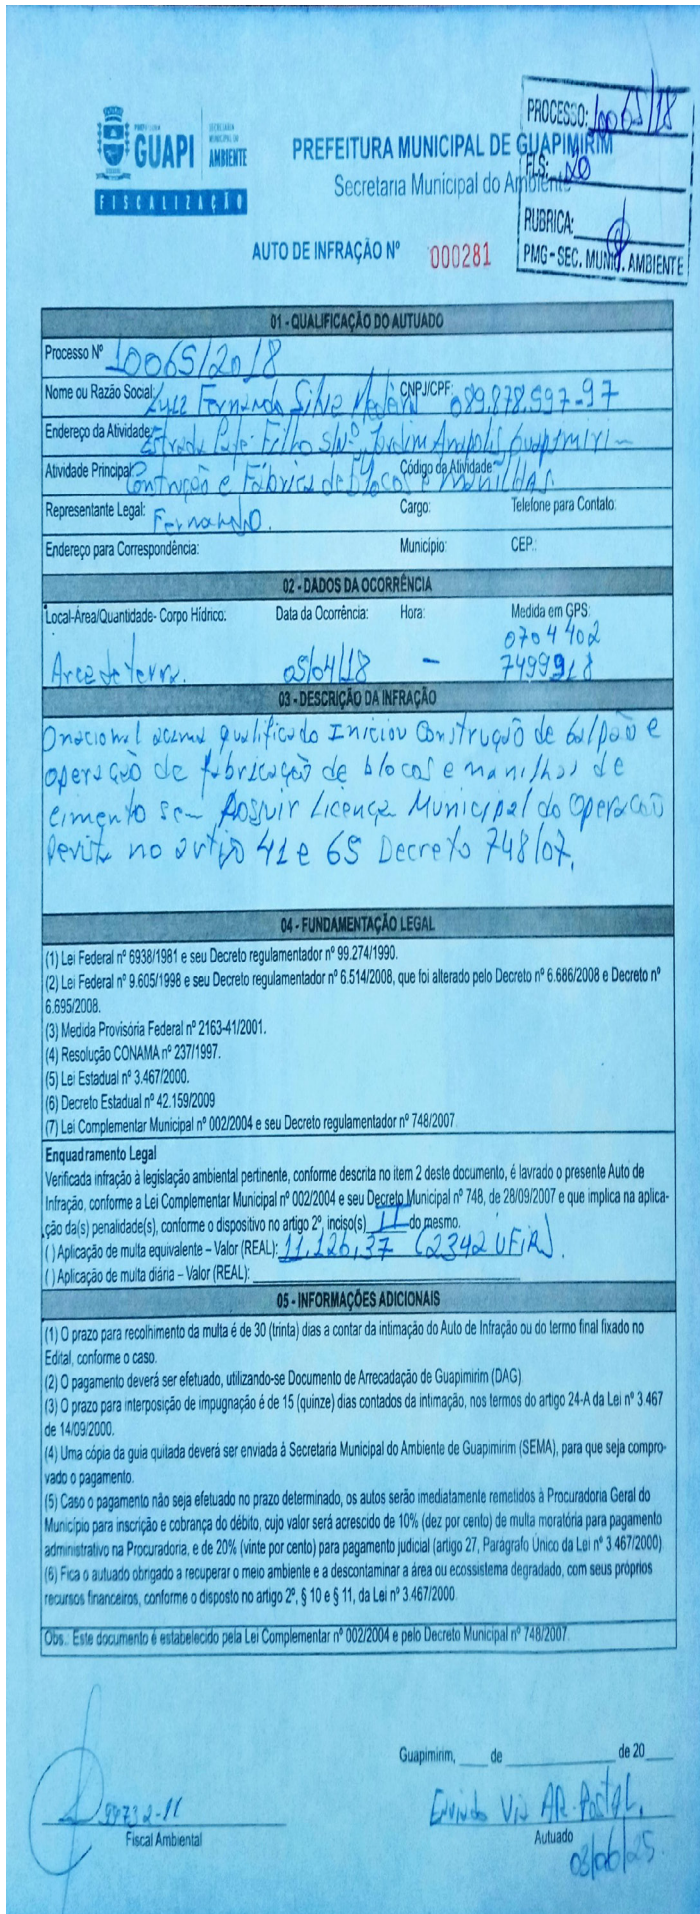 PREFEITURA
GUAPI
SECRETARIA MUNICIPAL DO AMBIENTE
FISCALIZAÇÃO
PREFEITURA MUNICIPAL DE GUAPIMIRIM
Secretaria Municipal do Ambiente
PROCESSO: 10065/18
FLS: 20
RUBRICA:
PMG - SEC. MUNIC. AMBIENTE
AUTO DE INFRAÇÃO Nº 000281
01 - QUALIFICAÇÃO DO AUTUADO
Processo Nº 10065/2018
Nome ou Razão Social: Luiz Fernando Silva CNPJ/CPF: 089.878.597-97
Endereço da Atividade: Estrada Café Filho S/Nº, Jardim Anapolis Guapimirim
Atividade Principal: Contrução e Fábrica de Blocos e Manilhas. Código da Atividade:
Representante Legal: Fernando. Cargo: Telefone para Contato:
Endereço para Correspondência: Município: CEP.:
02 - DADOS DA OCORRÊNCIA
Local-Área/Quantidade- Corpo Hídrico: Data da Ocorrência: Hora: Medida em GPS:
0704402
Area de terra. 05/04/18 – 7499918
03 - DESCRIÇÃO DA INFRAÇÃO
O nacional acima qualificado Iniciou Construção de Galpão e
operação de fabricação de blocos e manilhas de
cimento sem Possuir Licença Municipal de Operação
Previta no artigo 41 e 65 Decreto 748/07.
04 - FUNDAMENTAÇÃO LEGAL
(1) Lei Federal nº 6938/1981 e seu Decreto regulamentador nº 99.274/1990.
(2) Lei Federal nº 9.605/1998 e seu Decreto regulamentador nº 6.514/2008, que foi alterado pelo Decreto nº 6.686/2008 e Decreto nº
6.695/2008.
(3) Medida Provisória Federal nº 2163-41/2001.
(4) Resolução CONAMA nº 237/1997.
(5) Lei Estadual nº 3.467/2000.
(6) Decreto Estadual nº 42.159/2009
(7) Lei Complementar Municipal nº 002/2004 e seu Decreto regulamentador nº 748/2007
Enquadramento Legal
Verificada infração à legislação ambiental pertinente, conforme descrita no item 2 deste documento, é lavrado o presente Auto de
Infração, conforme a Lei Complementar Municipal nº 002/2004 e seu Decreto Municipal nº 748, de 28/09/2007 e que implica na aplica-
ção da(s) penalidade(s), conforme o dispositivo no artigo 2º, inciso(s) II do mesmo.
( ) Aplicação de multa equivalente – Valor (REAL): 11.126,37 (2342 UFIR).
( ) Aplicação de multa diária – Valor (REAL):
05 - INFORMAÇÕES ADICIONAIS
(1) O prazo para recolhimento da multa é de 30 (trinta) dias a contar da intimação do Auto de Infração ou do termo final fixado no
Edital, conforme o caso.
(2) O pagamento deverá ser efetuado, utilizando-se Documento de Arrecadação de Guapimirim (DAG)
(3) O prazo para interposição de impugnação é de 15 (quinze) dias contados da intimação, nos termos do artigo 24-A da Lei nº 3.467
de 14/09/2000.
(4) Uma cópia da guia quitada deverá ser enviada à Secretaria Municipal do Ambiente de Guapimirim (SEMA), para que seja compro-
vado o pagamento.
(5) Caso o pagamento não seja efetuado no prazo determinado, os autos serão imediatamente remetidos à Procuradoria Geral do
Município para inscrição e cobrança do débito, cujo valor será acrescido de 10% (dez por cento) de multa moratória para pagamento
administrativo na Procuradoria, e de 20% (vinte por cento) para pagamento judicial (artigo 27, Parágrafo Único da Lei nº 3.467/2000)
(6) Fica o autuado obrigado a recuperar o meio ambiente e a descontaminar a área ou ecossistema degradado, com seus próprios
recursos financeiros, conforme o disposto no artigo 2º, § 10 e § 11, da Lei nº 3.467/2000
Obs.: Este documento é estabelecido pela Lei Complementar nº 002/2004 e pelo Decreto Municipal nº 748/2007
Guapimirim, ____ de ____________ de 20____
Fiscal Ambiental
Enviado Via AR-Postal.
Autuado
03/06/25.